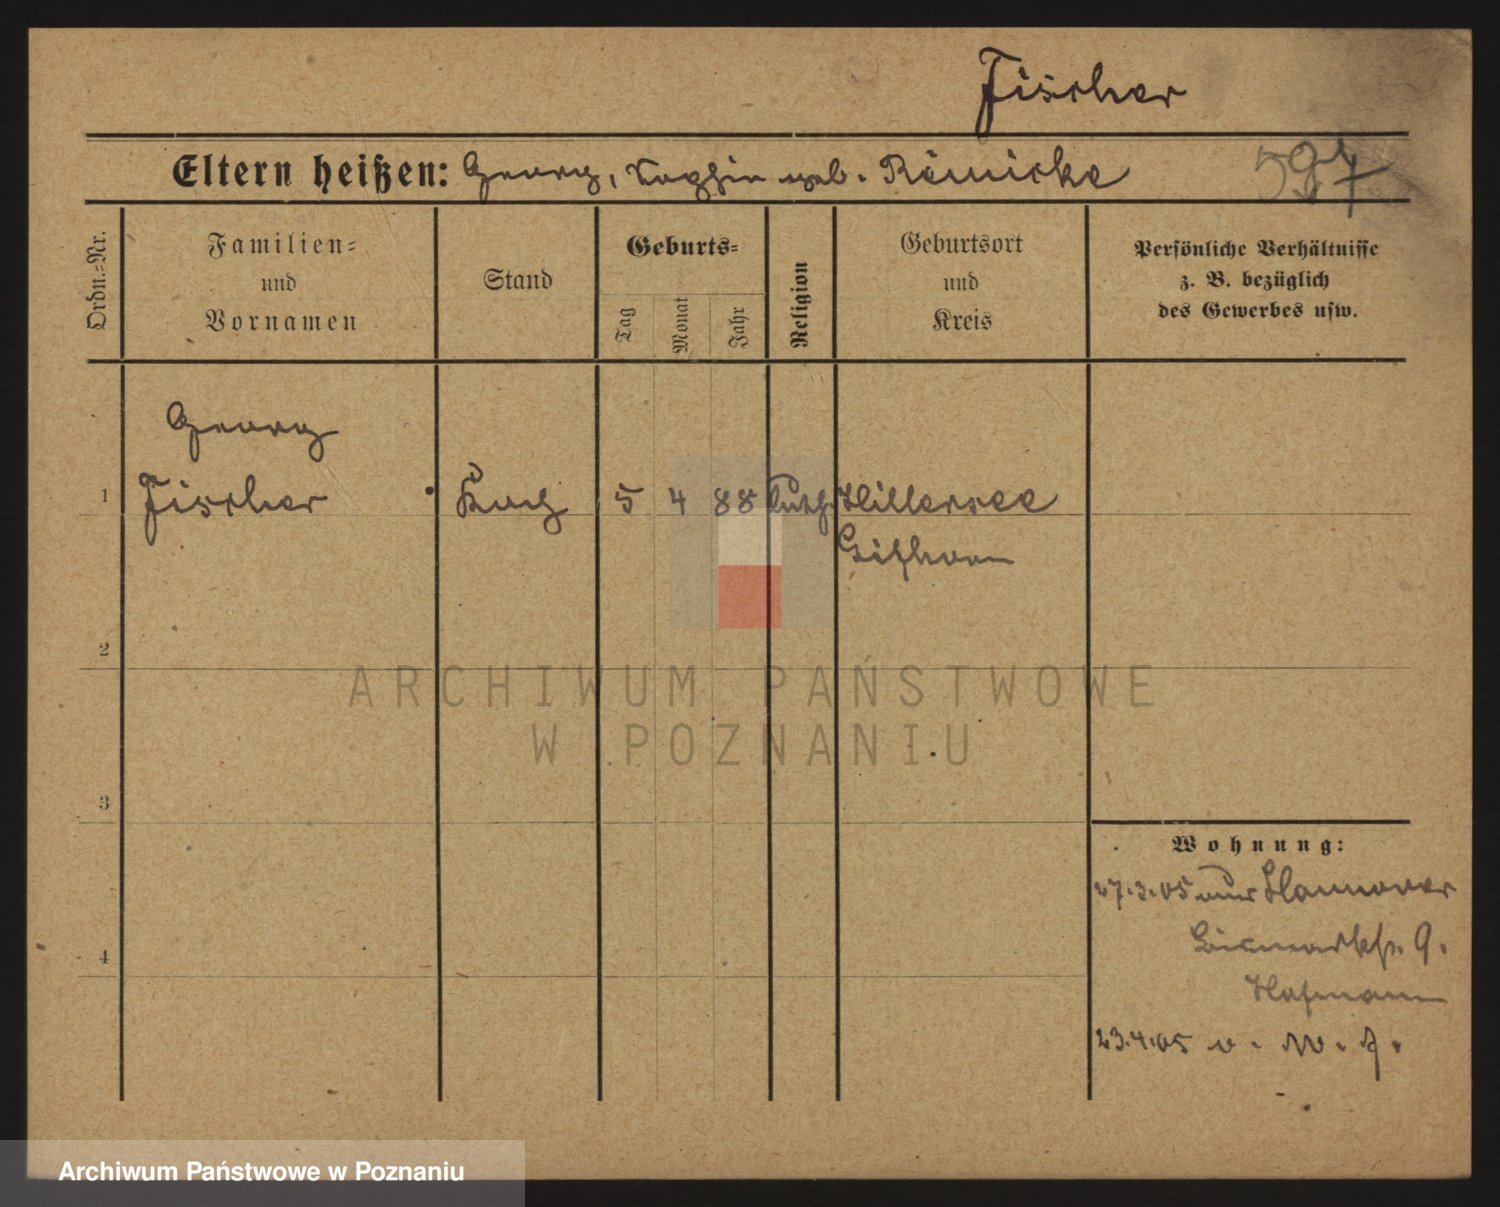 Fischer
Eltern heißen: Georg, Sophie geb. Römicke
597
Ordn.=Nr.
Familien=
und
Vornamen
Stand
Geburts=
Tag
Monat
Jahr
Religion
Geburtsort
und
Kreis
Persönliche Verhältnisse
z. B. bezüglich
des Gewerbes usw.
Georg
1 Fischer Koch 5 4 88 luth. Hillersee
Gifhorn
2
3
4
ARCHIWUM PAŃSTWOWE
W POZNANIU
Wohnung:
27.3.05 aus Hannover
Bismarckstr. 9.
Hofmann
23.4.05 v. W. f.
Archiwum Państwowe w Poznaniu